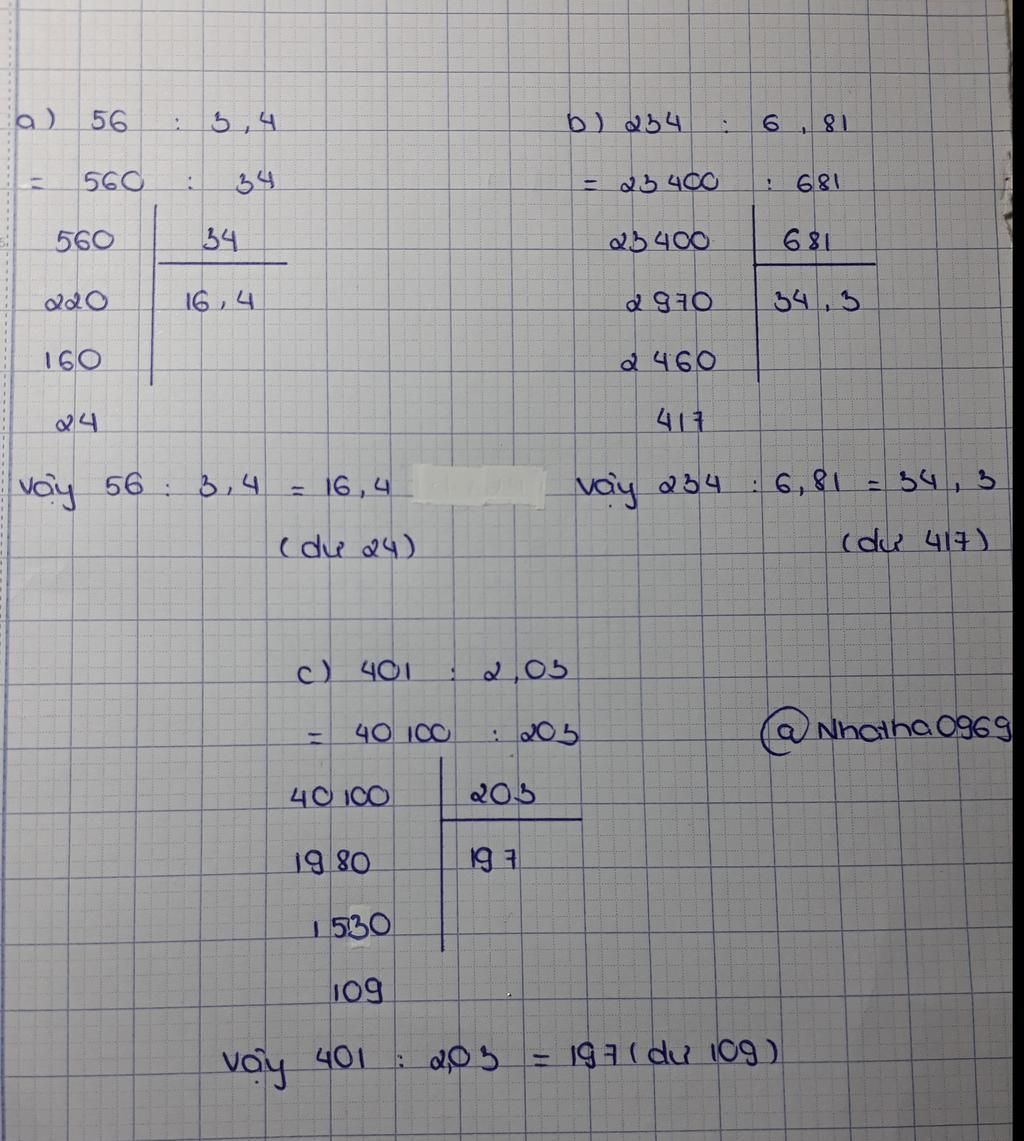 a) 56 : 3,4
= 560 : 34
560 34
220 16,4
160
24
vậy 56 : 3,4 = 16,4
(dư 24)
b) 234 : 6,81
= 23400 : 681
23400 681
2970 34,3
2460
417
vậy 234 : 6,81 = 34,3
(dư 417)
c) 401 : 2,03
= 40100 : 203
40100 203
1980 197
1530
109
vậy 401 : 2,03 = 197 (dư 109)
@Nhatha0969